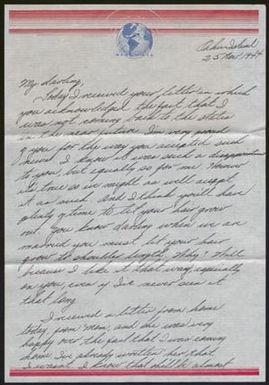 25 Nov. 1944
My darling,
Today I received your letter in which
you acknowledged the fact that I
was not coming back to the states
in the near future. I'm very proud
of you for the way you accepted such
news. I know it was such a disappointment
to you, but equally so for me. However
its true so we might as well accept
it as such. And I think you'll have
plenty of time to let your hair grow
out. You know darling when we are
married you must let your hair
grow to shoulder length. Why? Well
because I like it that way, especially
on you, even if I've never seen it
that long.
I received a letter from home
today, from Mom, and she was very
happy over the fact that I was coming
home. I've already written her that
I wasn't. I know that she'll be almost